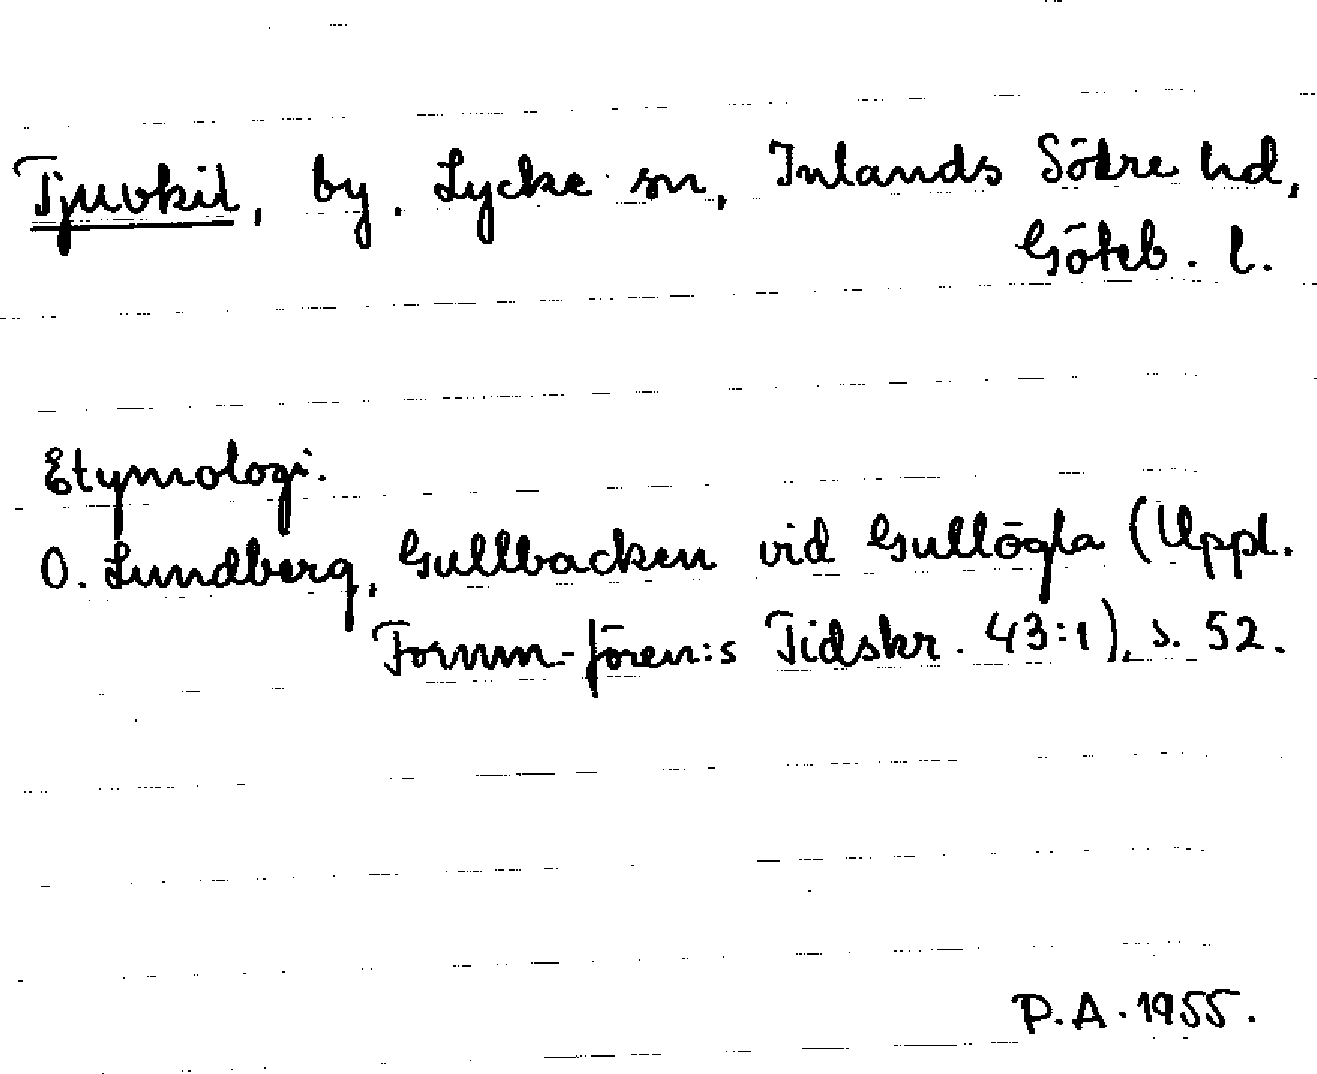 Tjuvkil, by, Lycke sn, Inlands Södre hd,
Göteb. l.
Etymologi.
O. Lundberg, Gullbacken vid Gullögla (Uppl.
Fornm-fören:s Tidskr. 43:1), s. 52.
P.A. 1955.